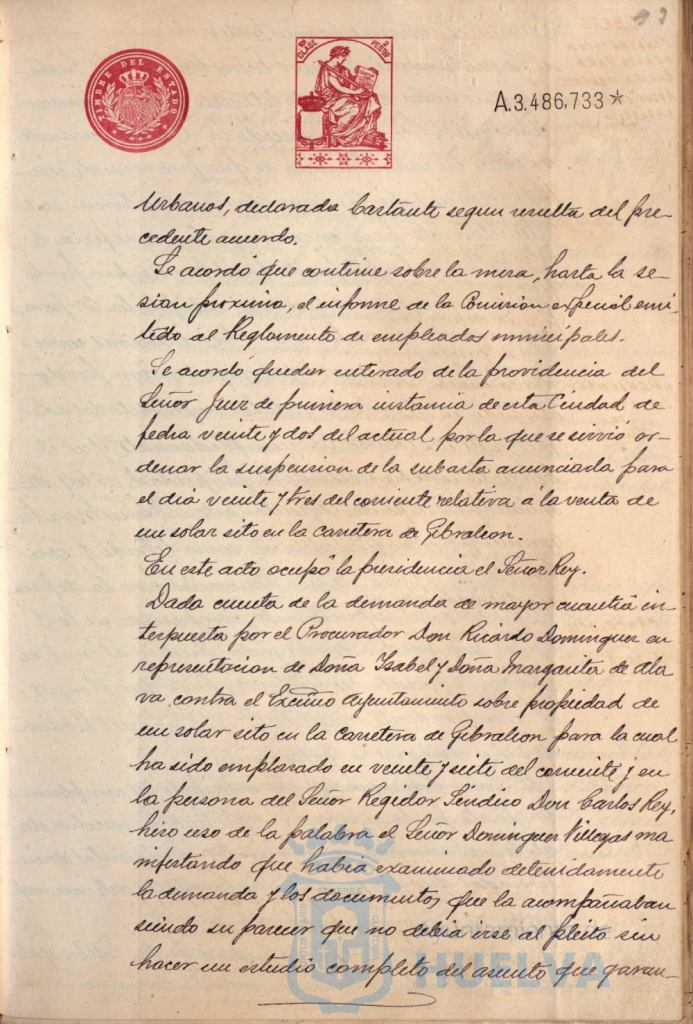 TIMBRE DEL ESTADO
10ª CLASE
2 PESETAS
A.3.486,733*
Urbanos, declarada bastante segun resulta del pre-
cedente acuerdo.
Se acordó que continue sobre la mesa, hasta la se-
sion proxima, el informe de la Comision especial emi-
tido al Reglamento de empleados municipales.
Se acordó quedar enterado de la providencia del
Señor Juez de primera instancia de esta Ciudad de
fecha veinte y dos del actual por la que se sirvió or-
denar la suspension de la subasta anunciada para
el dia veinte y tres del corriente relativa á la venta de
un solar sito en la carretera de Gibraleon.
En este acto ocupó la presidencia el Señor Rey.
Dada cuenta de la demanda de mayor cuantia in-
terpuesta por el Procurador Don Ricardo Dominguez en
representacion de Doña Isabel y Doña Margarita de Ala
va, contra el Excmo Ayuntamiento sobre propiedad de
un solar sito en la carretera de Gibraleon para la cual
ha sido emplazado en veinte y siete del corriente y en
la persona del Señor Regidor Síndico Don Carlos Rey,
hizo uso de la palabra el Señor Dominguez Villegas ma
nifestando que habia examinado detenidamente
la demanda y los documentos que la acompañaban
siendo su parecer que no debia irse al pleito sin
hacer un estudio completo del asunto que garan-
HUELVA